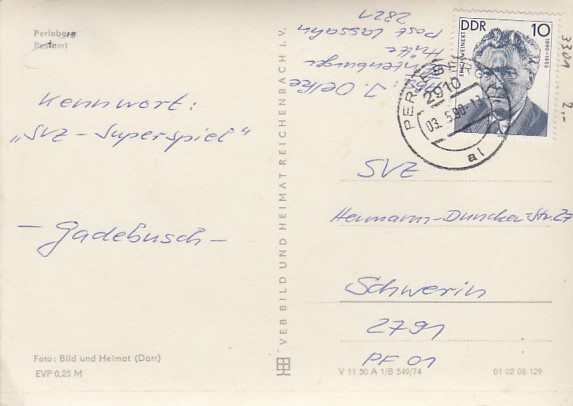 Perleberg
Postamt
Kennwort:
„SVZ - Superspiel"
- Gadebusch -
Foto: Bild und Heimat (Darr)
EVP 0,25 M
VEB BILD UND HEIMAT REICHENBACH i. V.
J. Oelke
Hütte
Post Lassahn
2821
DDR 10
ERICH WEINERT
1890-1953
PERLEBERG
2910
03.5.90-1
al
3301 2,-
SVZ
Hermann-Duncker-Str. 27
Schwerin
2791
PF 01
V 11 50 A 1/B 549/74
01 02 05 129